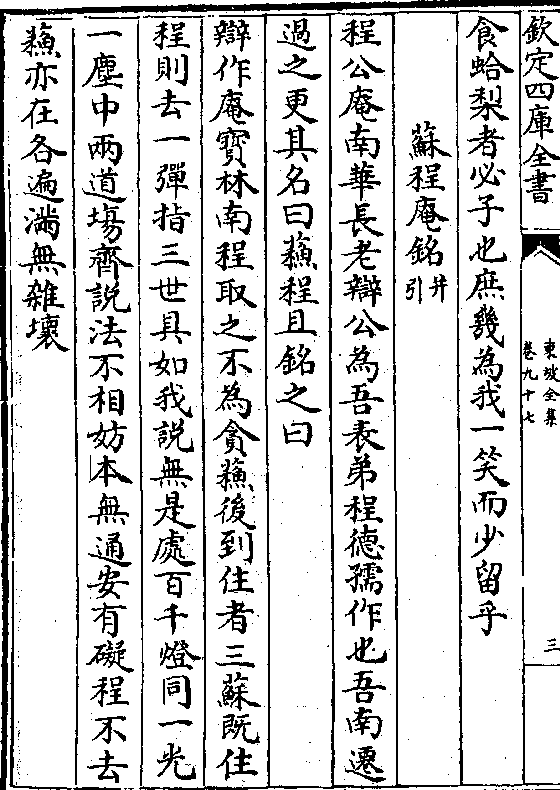 欽定四庫全書
東坡全集
卷九十七
三
食蛤梨者必子也庶幾為我一笑而少留乎
蘇程庵銘并引
程公庵南華長老辯公為吾表弟程德孺作也吾南遷
過之更其名曰蘓程且銘之曰
辯作庵寳林南程取之不為貪蘓後到住者三蘇既住
程則去一彈指三世具如我説無是處百千燈同一光
一塵中兩道場齊説法不相妨本無通安有礙程不去
蘓亦在各遍滿無雜壞